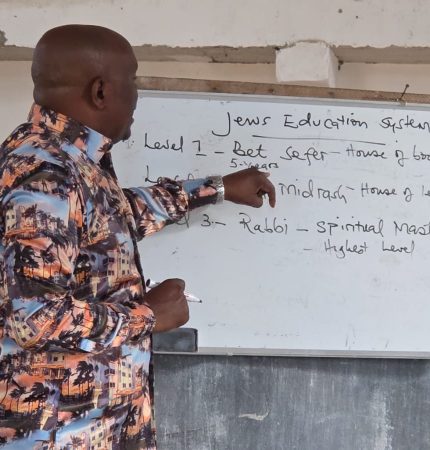 Jews Education System
Level 1 - Bet Sefer - House of
5 - years
Midrash - House of
3. - Rabbi - Spiritual
- Highest Level